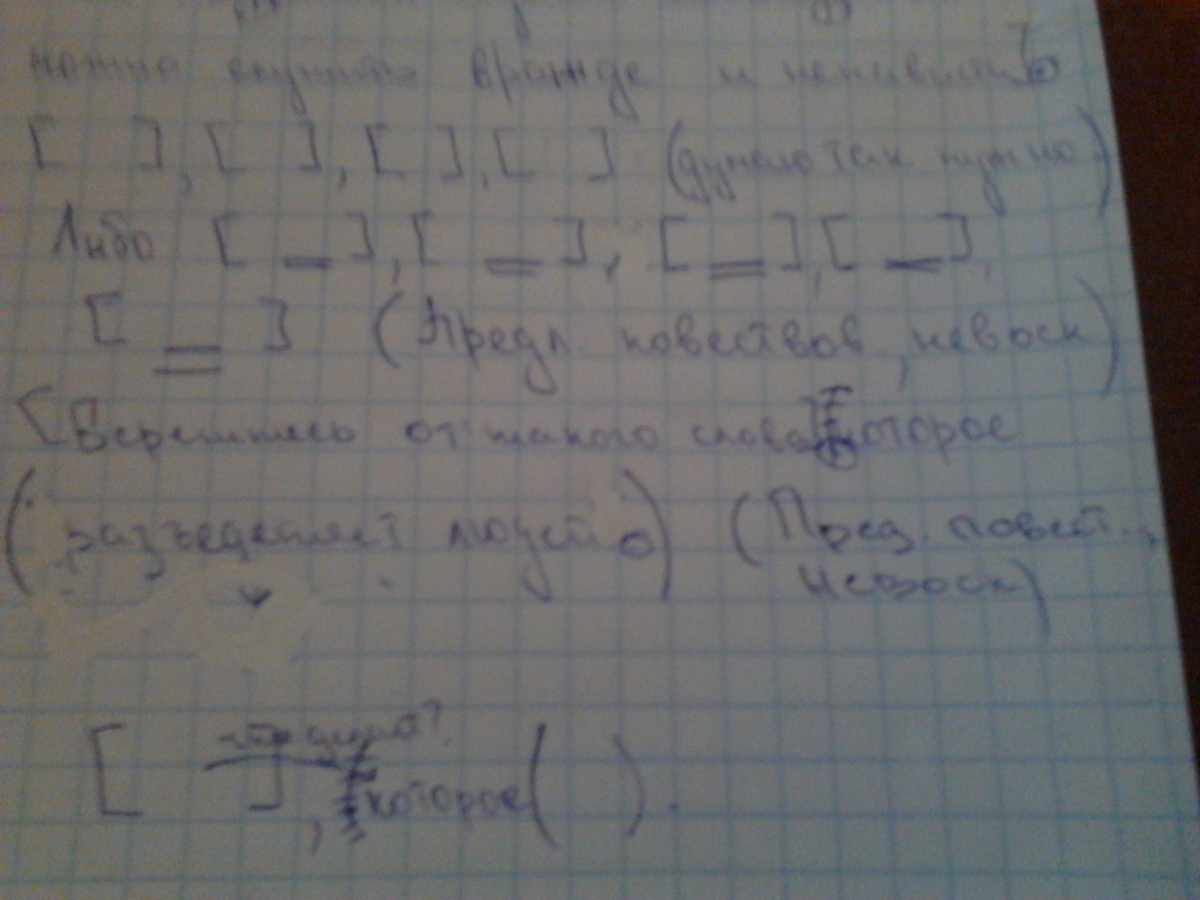 можно служить вражде и ненависти]
[ ], [ ], [ ], [ ]. (думаю так нужно)
Либо [ ], [ ], [ ], [ ],
[ ] (Предл повествов, невоск)
[Берегитесь от такого слова] которое
(разъединяет людей) (Пред. повест.,
невоск)
[ ], которое ( ).